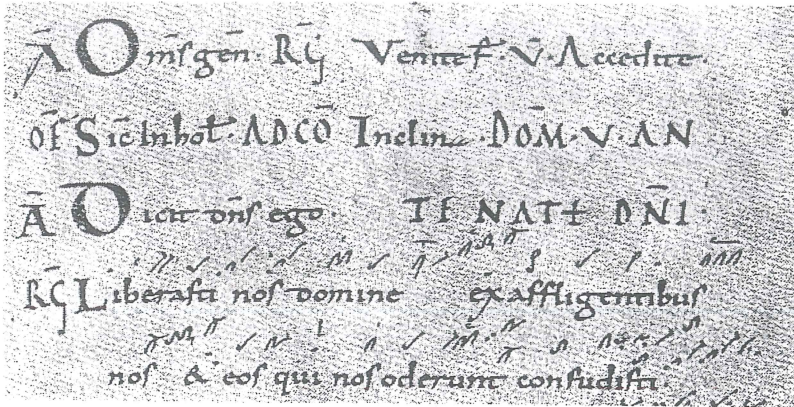 Ā Om̄s gen̄. R̄G Venite f̄. V̄. Accedite.
Of̄ Sic̄ In hoł. AD CŌ Inclina. DOM̄. V. AN
Ā Dicit dn̄s ego. TE NAT DN̄I.
R̄G Liberasti nos domine ex affligentibus
nos & eos qui nos oderunt confudisti.